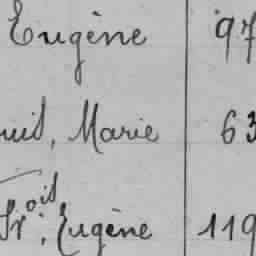 Eugène 97
uis, Marie 63
Fr^ois, Eugène 119